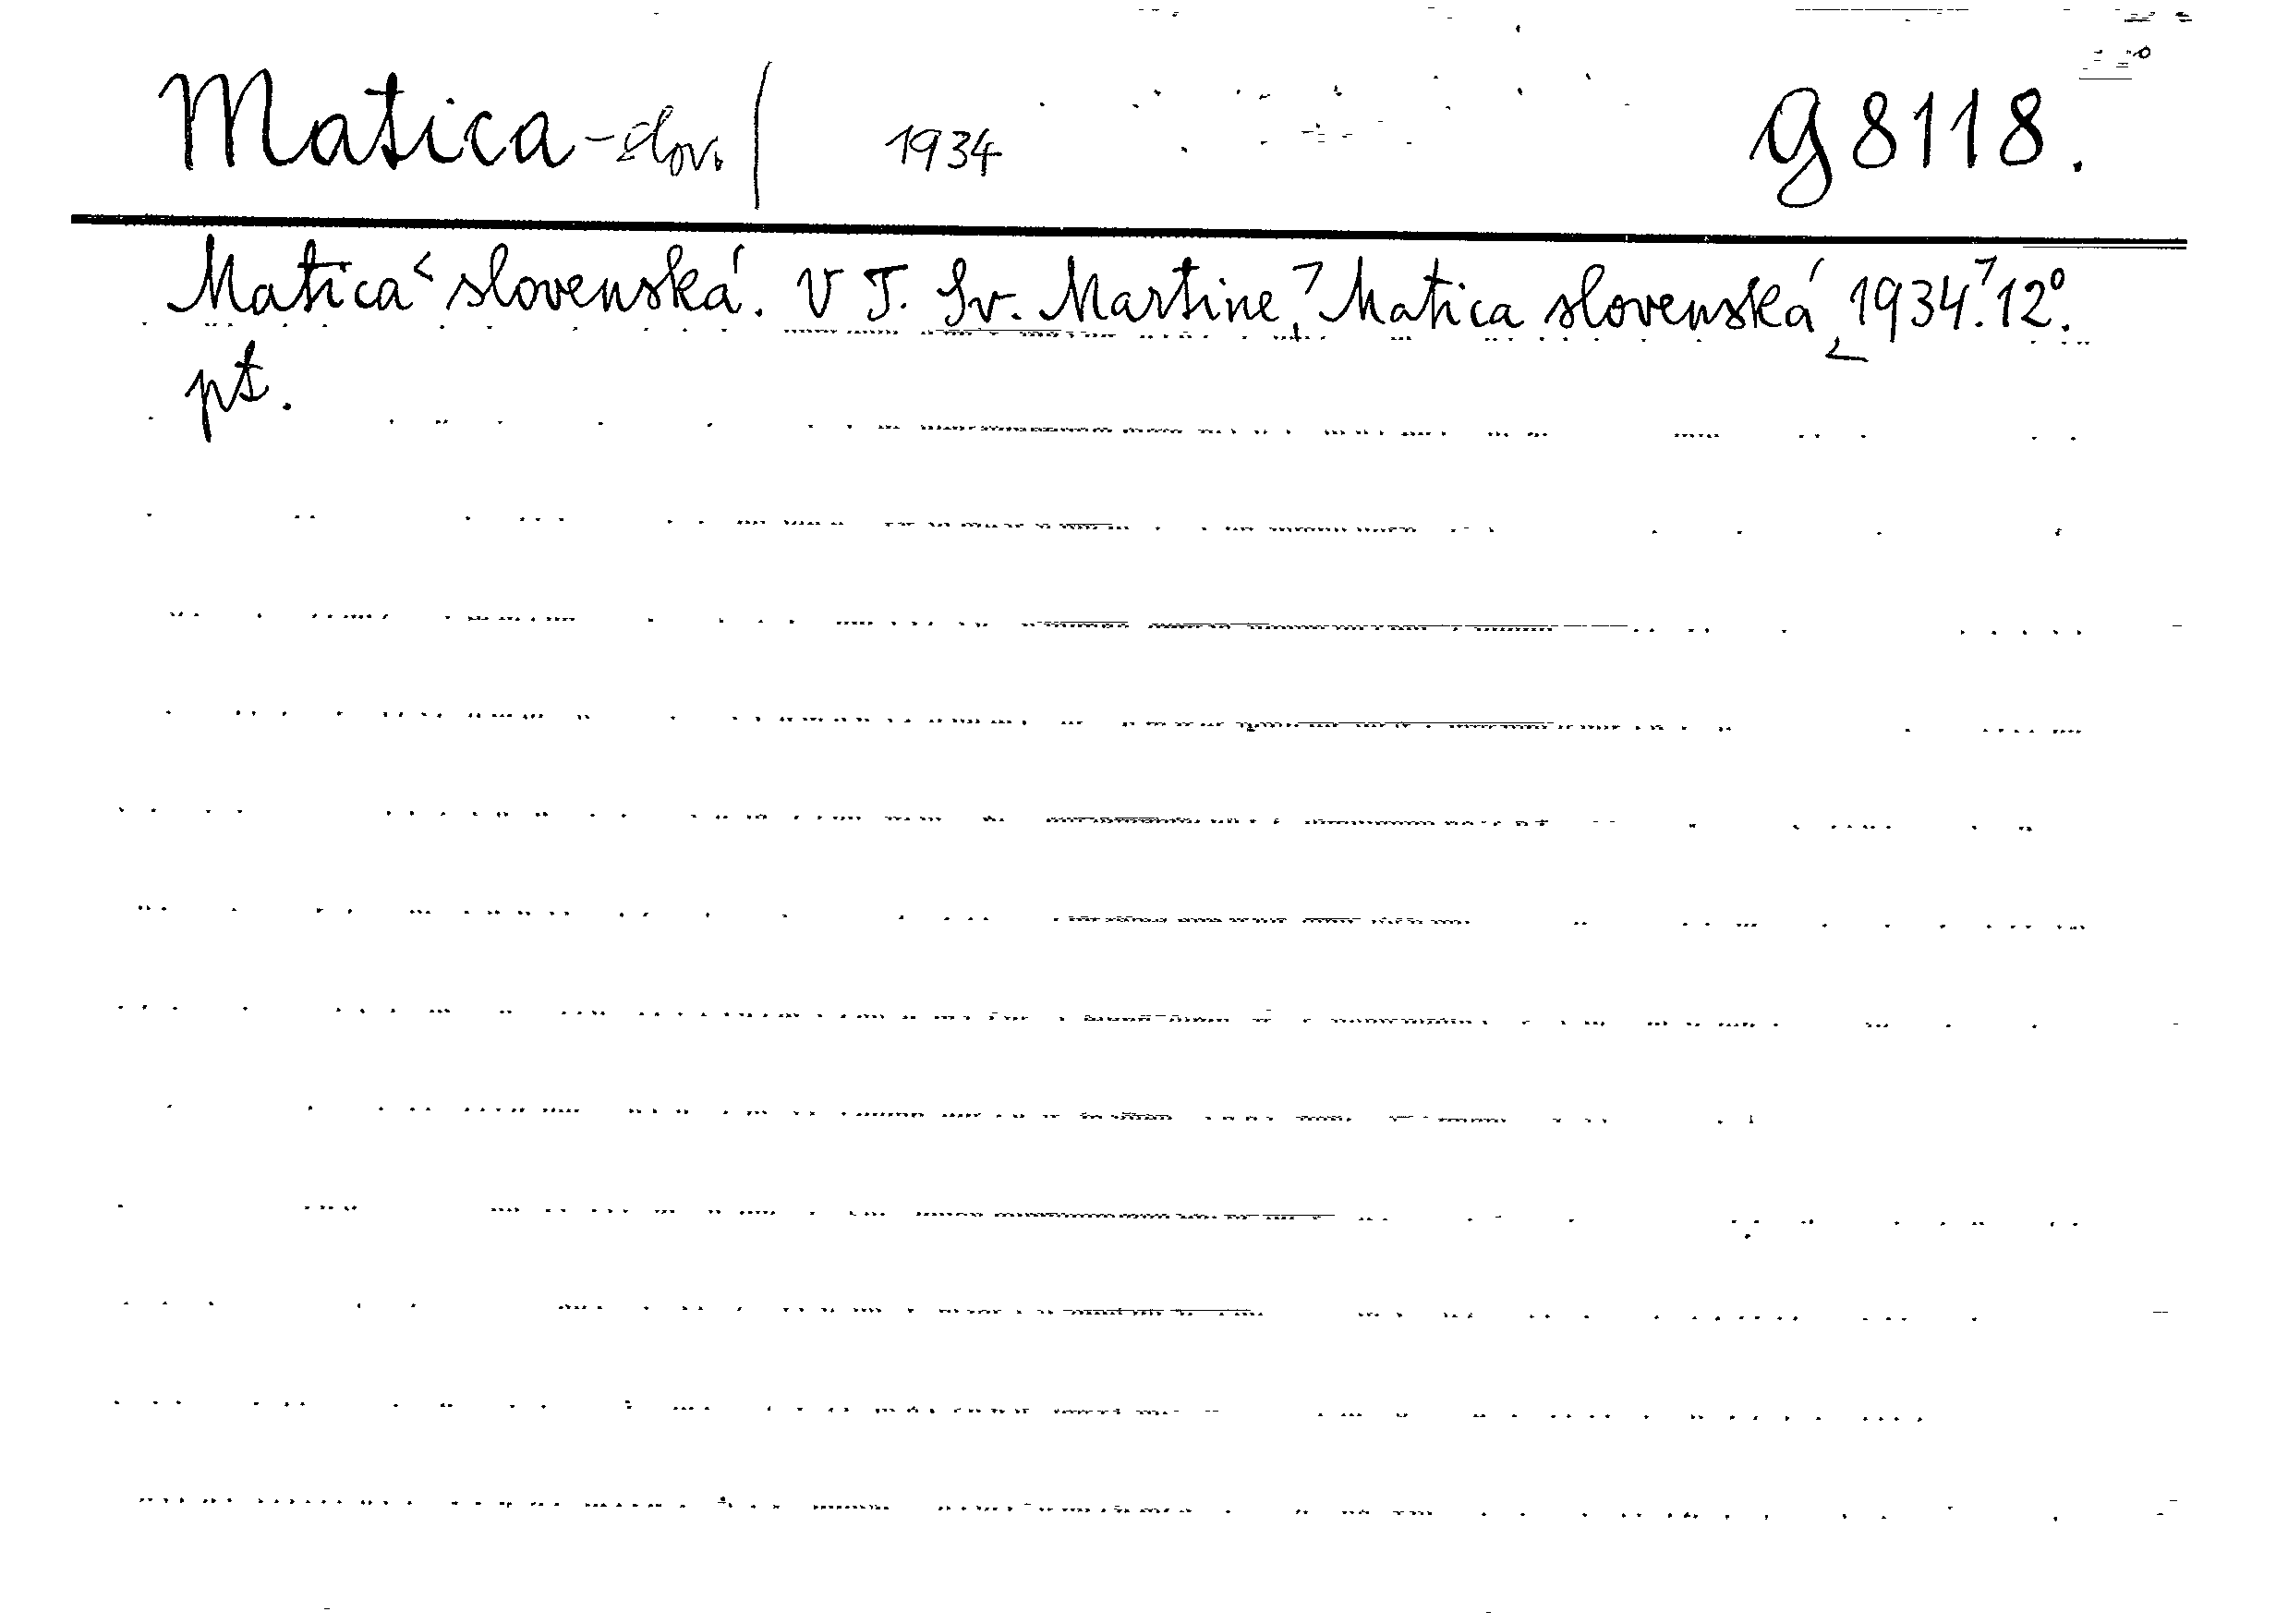 Matica-slov. | 1934 G 8118.
Matica < slovenská. V T. Sv. Martine, Matica slovenská, 1934. 12°.
pt.